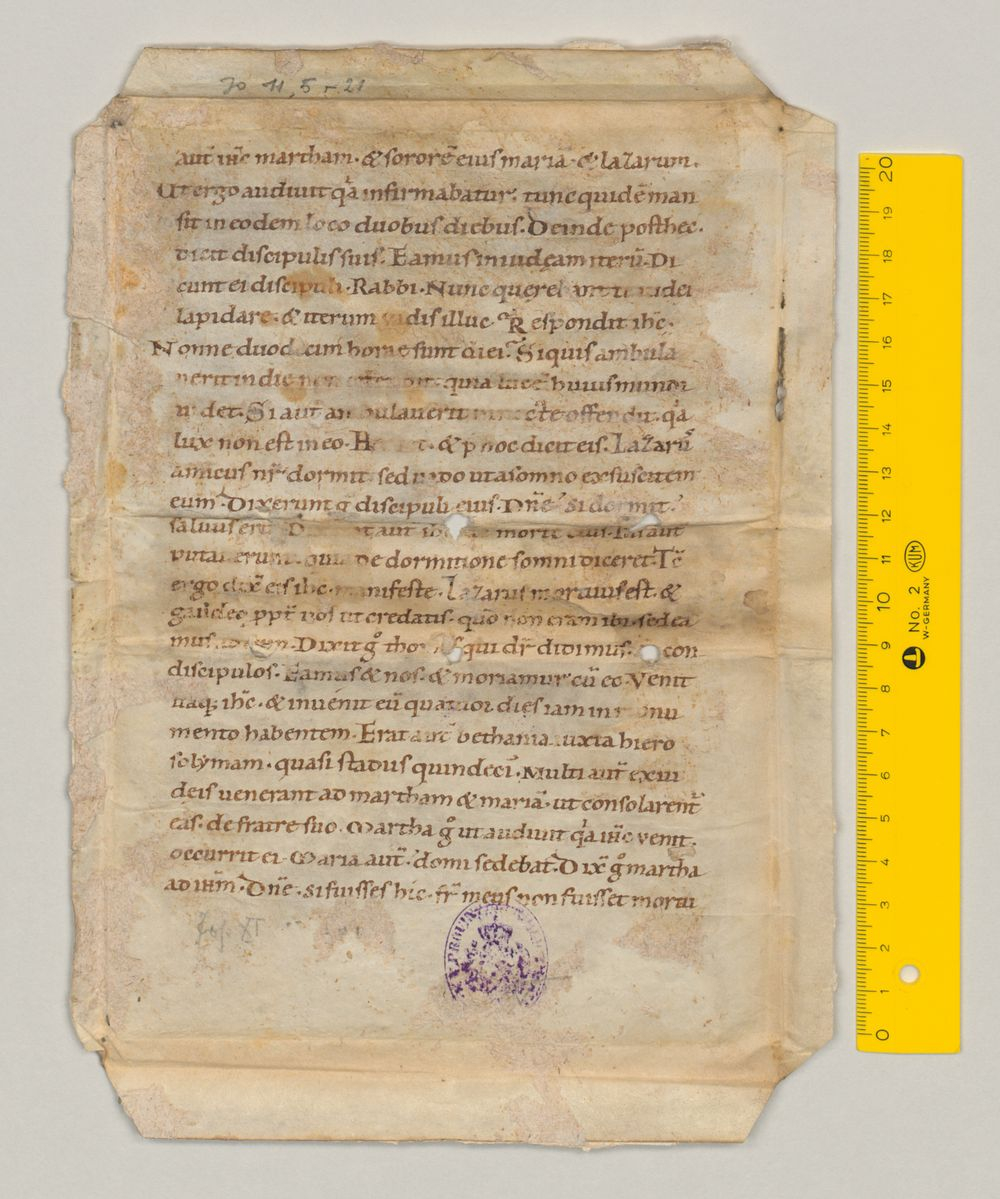 Jo 11, 5 – 21
aut̄ ih̄c martham · & sororē eius mariā · & lazarum.
Ut ergo audiuit q̄a infirmabatur · tunc quidē man
sit in eodem loco duobus diebus · Deinde post hec ·
dicit discipulis suis · Eamus in iudęam iterū · Di
cunt ei discipuli · Rabbi · Nunc querebant te iudei
lapidare · & iterum uadis illuc · Respondit ih̄c ·
Nonne duodecim horae sunt diei · Si quis ambula
uerit in die non quia lucē huius mundi
uidet · Si aut̄ ambulauerit nocte offendit · q̄a
lux non est in eo · & p̄ hoc dicit eis · Lazarū
amicus nr̄ dormit · sed uado ut a somno exsuscitem
eum · Dixerunt g̊ discipuli eius · Dn̄e · si dormit ·
saluus erit · aut̄ morte eius · Illi aut̄
putauerunt quia de dormitione somni diceret · Tc̄
ergo dix̄ eis ih̄c manifeste · Lazarus mortuus est · &
gaudeo ppt̄ uos ut credatis · quō non eram ibi · sed ea
mus · Dixit g̊ qui dr̄ didimus · con
discipulos · Eamus & nos · & moriamur cū eo · Venit
itaq; ih̄c · & inuenit eū quatuor dies iam in monu
mento habentem · Erat aut̄ bethania iuxta hiero
solymam · quasi stadiis quindecī · Multi aut̄ ex iu
deis uenerant ad martham & mariā · ut consolarent̄
eas · de fratre suo · Martha g̊ ut audiuit q̄a ih̄c uenit ·
occurrit ei · Maria aut̄ · domi sedebat · Dix̄ g̊ martha
ad ih̄m · Dn̄e · si fuisses hic · fr̄ meus non fuisset mortu
20
19
18
17
16
15
14
13
12
11
10
9
8
7
6
5
4
3
2
1
0
No. 2
KUM
W-GERMANY